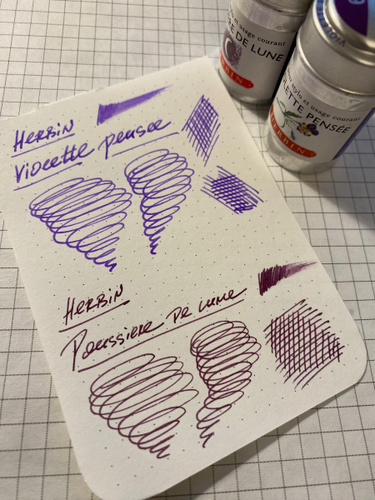 HERBIN
Violette pensée
HERBIN
Poussiere De Lune
E DE LUNE
stylo et usage courant
LETTE PENSÉE